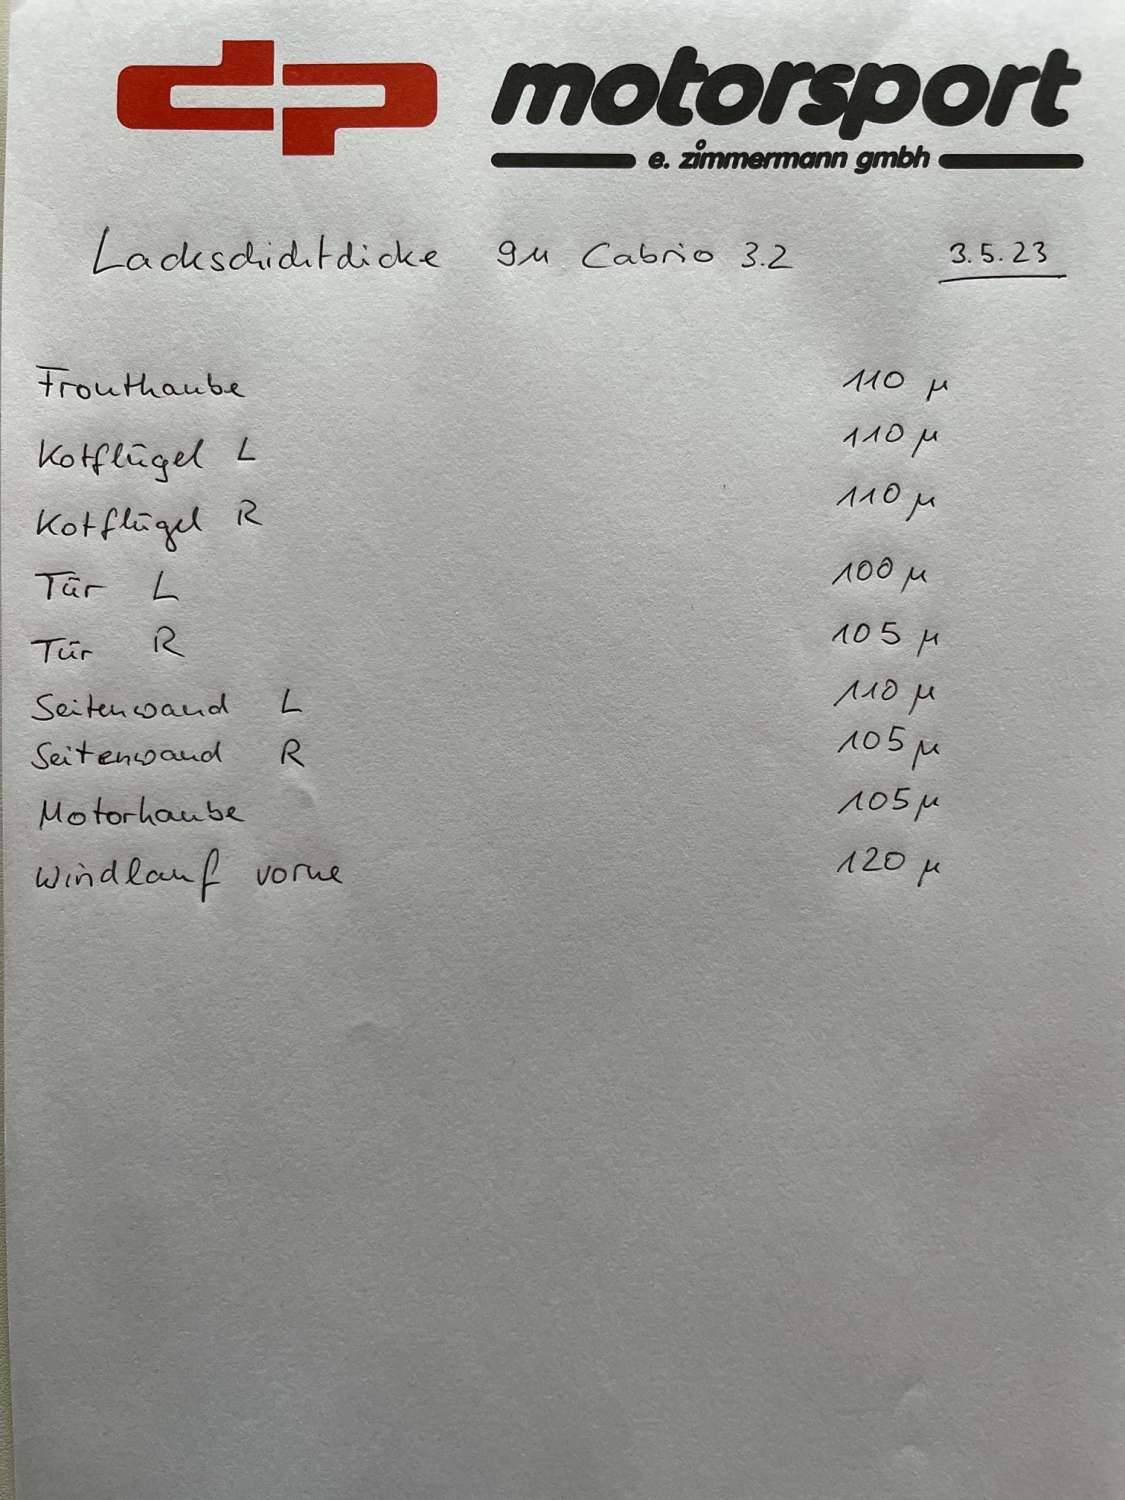 dp motorsport
e. zimmermann gmbh
Lackschichtdicke 911 Cabrio 3.2 3.5.23
Fronthaube 110 µ
Kotflügel L 110 µ
Kotflügel R 110 µ
Tür L 100 µ
Tür R 105 µ
Seitenwand L 110 µ
Seitenwand R 105 µ
Motorhaube 105 µ
Windlauf vorne 120 µ